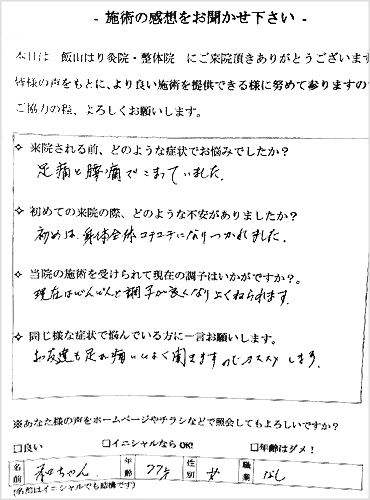 - 施術の感想をお聞かせ下さい -
本日は 飯山はり灸院・整体院 にご来院頂きありがとうございます
皆様の声をもとに、より良い施術を提供できる様に努めて参りますの
ご協力の程、よろしくお願いします。
✧ 来院される前、どのような症状でお悩みでしたか？
足痛と腰痛でこまっていました。
✧ 初めての来院の際、どのような不安がありましたか？
初めは、身体全体コチコチになりつかれました。
✧ 当院の施術を受けられて現在の調子はいかがですか？。
現在はどんどんと調子が良くなりよくねられます。
✧ 同じ様な症状で悩んでいる方に一言お願いします。
お友達も足が痛いとよく聞きますのでおススメします。
※あなた様の声をホームページやチラシなどで照会してもよろしいですか？
□良い □イニシャルなら OK! □年齢はダメ！
名前 ちゃん 年齢 77才 性別 女 職業 なし
(名前はイニシャルでも結構です)